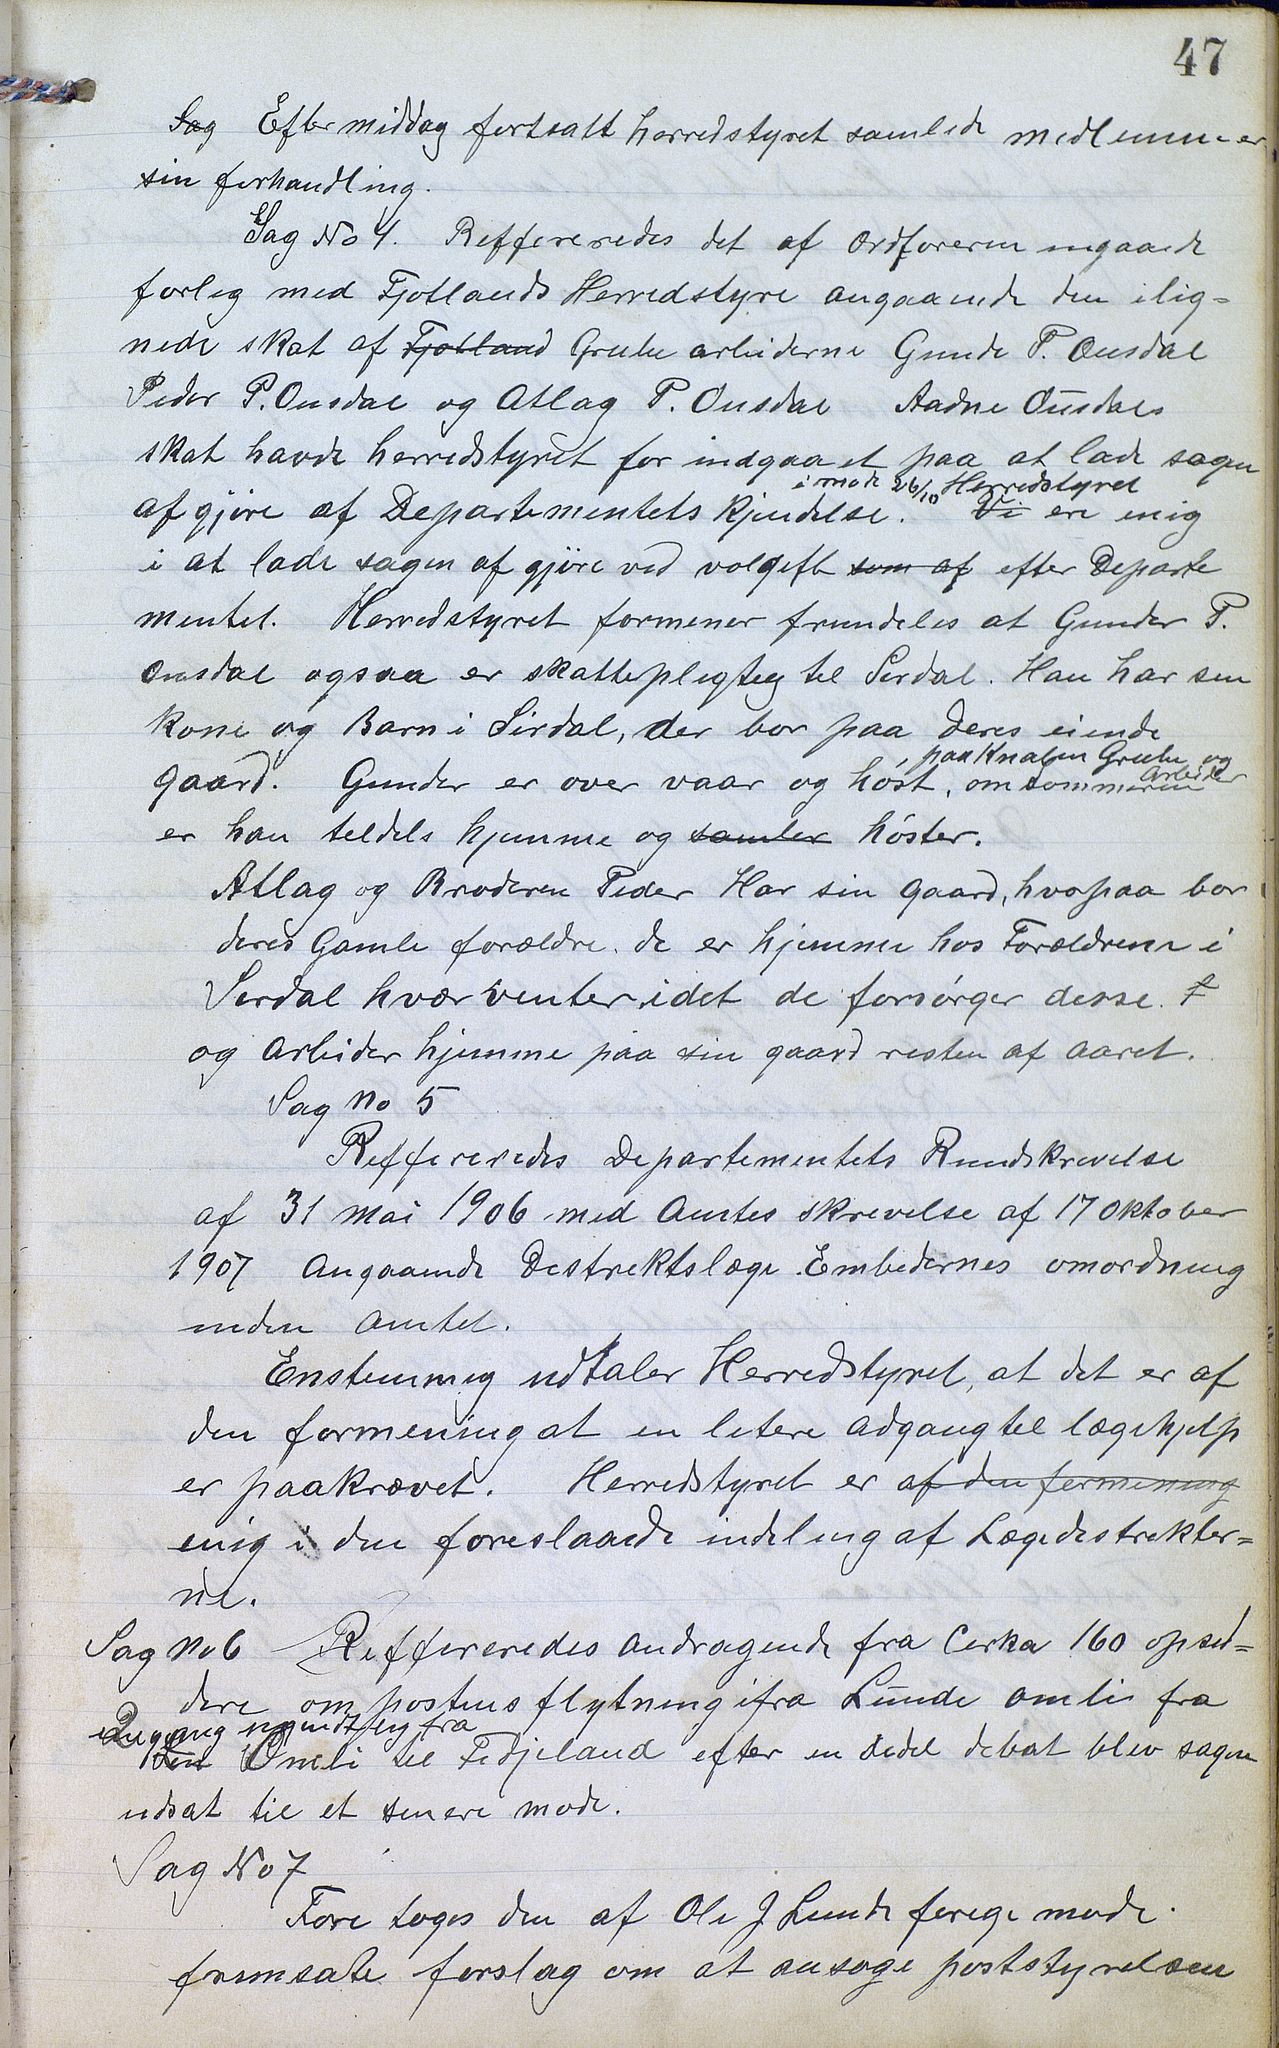 47
Sag Eftermiddag fortsatt herredstyret samlede medlemmer
sin forhandling.
Sag No 4. Reffereredes det af Ordføreren ingaaede
forlig med Fjotlands Herredstyre angaaende den ilig=
nede skat af Fjotland Grube arbeiderne Gunde P. Ousdal
Peder P. Ousdal og Atlag P. Ousdal Aadne Ousdals
skat havde herredstyret før indgaaet paa at lade sagen
i møde 26/10 Herredstyret
afgjøre af Departementets Kjendelse. Vi ere enig
i at lade sagen afgjøre ved volgift som af efter Departe
mentet. Herredstyret formener fremdeles at Gunder P.
Ousdal ogsaa er skattepligteg til Serdal. Han har sin
kone og Barn i Sirdal, der bor paa deres eiende
paa Knaben Grube og
gaard. Gunder er over vaar og høst, om sommeren
arbeider
er han teldels hjemme og samler høster.
Atlag og Broderen Peder Har sin gaard, hvorpaa bor
deres Gamle forældre. de er hjemme hos Forældrene i
Serdal hvær venter, idet de forsørger desse. f
og arbeider hjemme paa sin gaard resten af aaret.
Sag No 5
Reffereredes Departementets Rundskrevelse
af 31 mai 1906 med Amtes skrevelse af 17 Oktober
1907 Angaaende Destrektslæge Embedernes omordning
inden Amtet.
Enstemmig udtaler Herredstyret, at det er af
den formening at en letere adgang tel lægehjelp
er paakrævet. Herredstyret er af den formening
enig i den foreslaaede indeling af Lægedestrekter=
ne.
Sag No 6 Reffereredes andragende fra Cerka 160 opsid=
dere om postens flytning ifra Lunde Omli fra
Omli til Fidjeland efter en Dedel debat blev sagen
udsat til et senere møde.
Sag No 7
Fore toges den af Ole J Lunde forige møde.
fremsate forslag om at ansøge poststyrelsen